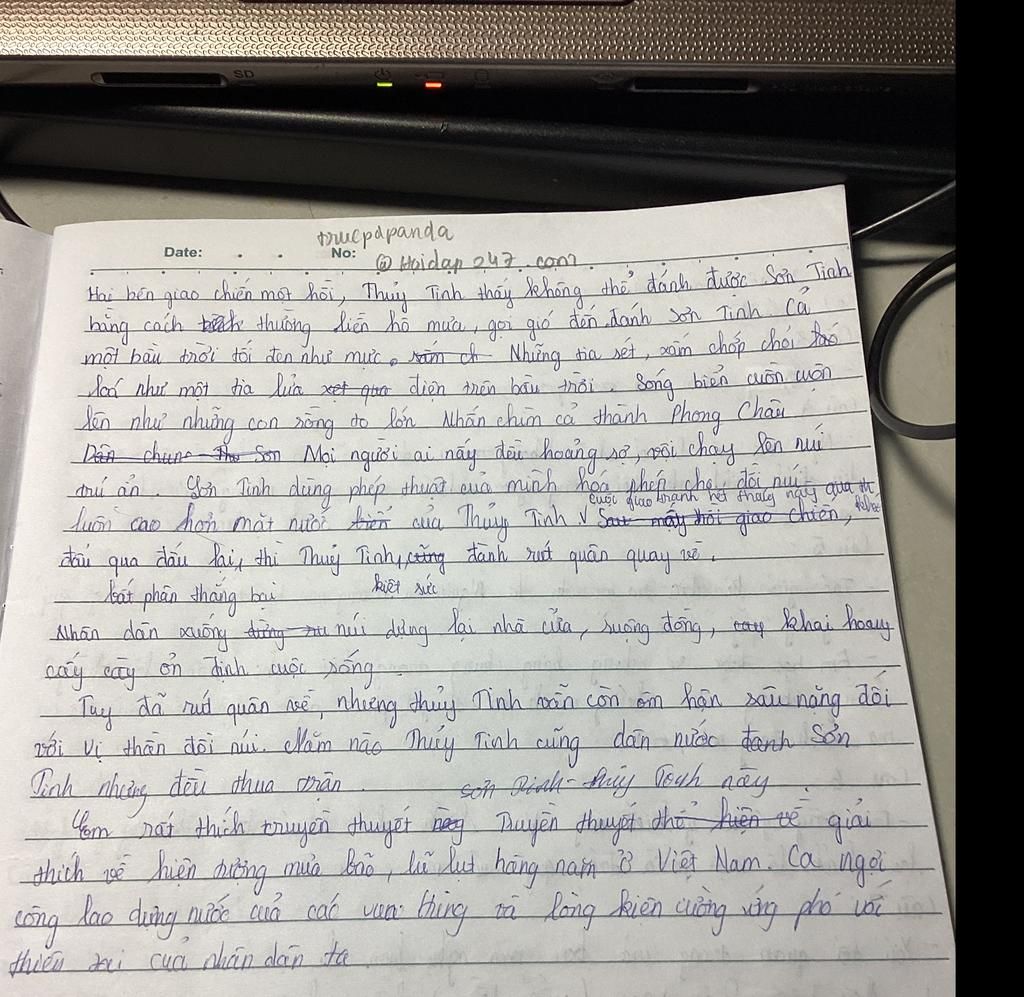 SD
trucpdpanda
Date: No:
@Hoidap 247. com
Hai bên giao chiến một hồi, Thủy Tinh thấy không thể đánh được Sơn Tinh
bằng cách thường liền hô mưa, gọi gió đến đánh Sơn Tinh. Cả
một bầu trời tối đen như mực. Những tia sét, xấm chớp chói
loá như một tia lửa điện trên bầu trời. Sóng biển cuồn cuồn
lên như những con sóng to lớn Nhấn chìm cả thành Phong Châu
Mọi người ai nấy đều hoảng sợ, vội chạy lên núi
trú ẩn. Sơn Tinh dùng phép thuật của mình hoá phép cho đồi núi
cuộc giao tranh hết tháng này qua
luôn cao hơn mặt nước của Thủy Tinh
đấu qua đấu lại, thì Thủy Tinh đành rút quân quay về.
bất phân thắng bại kiệt sức
Nhân dân xuống núi dựng lại nhà cửa, ruộng đồng, khai hoang
cấy cày ổn định cuộc sống
Tuy đã rút quân về, nhưng Thủy Tinh vẫn còn ôm hận sâu nặng đối
với vị thần đồi núi. Năm nào Thủy Tinh cũng dân nước đánh Sơn
Tinh nhưng đều thua trận.
Sơn Tinh - Thủy Tinh này
Em rất thích truyền thuyết Truyền thuyết giải
thích về hiện tượng mưa bão, lũ lụt hàng năm ở Việt Nam. Ca ngợi
công lao dựng nước của các vua Hùng và lòng kiên cường ứng phó với
thiên tai của nhân dân ta